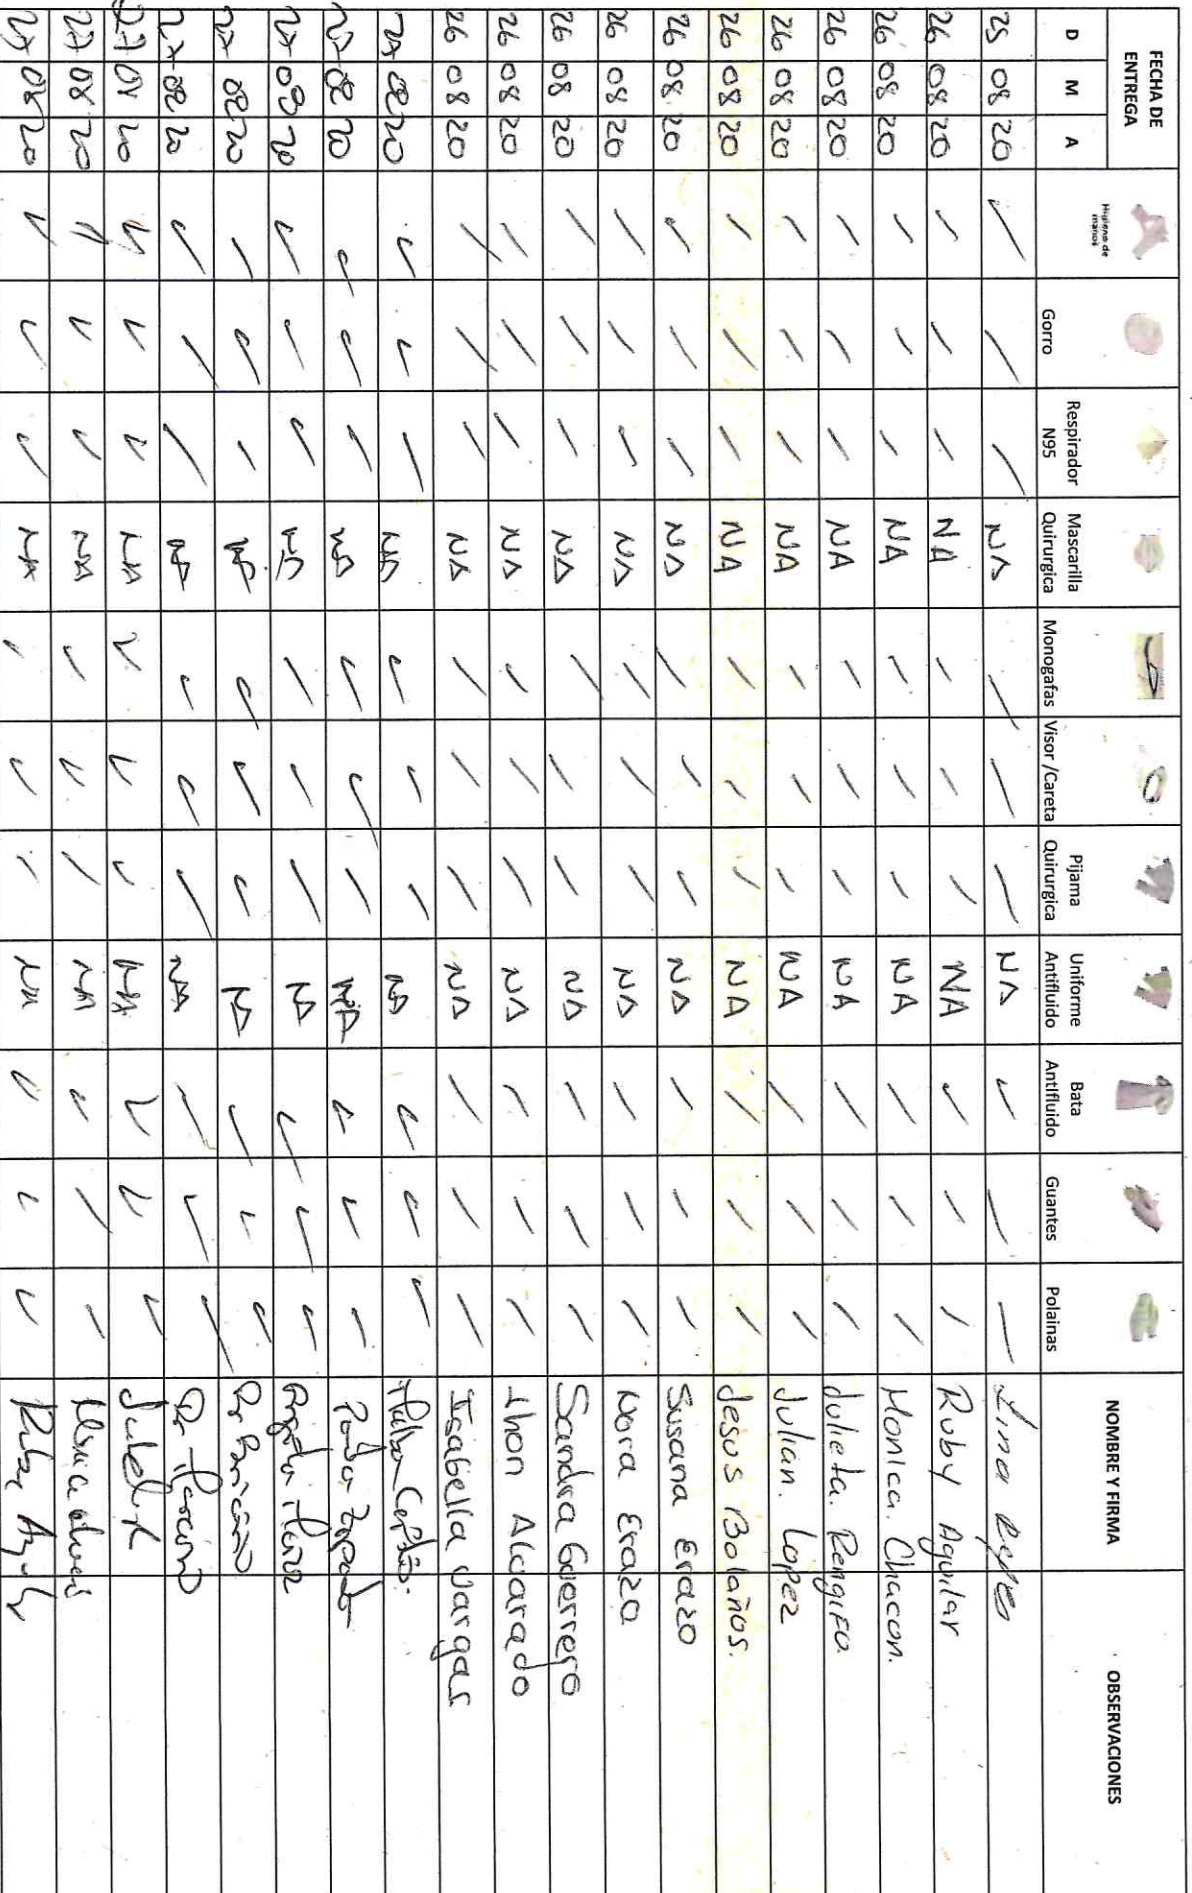 FECHA DE ENTREGA
D M A
Higiene de manos
Gorro
Respirador N95
Mascarilla Quirurgica
Monogafas
Visor /Careta
Pijama Quirurgica
Uniforme Antifluido
Bata Antifluido
Guantes
Polainas
NOMBRE Y FIRMA
OBSERVACIONES
25 08 20 ✓ ✓ ✓ NA ✓ ✓ ✓ NA ✓ ✓ ✓ Lina Reyes
26 08 20 ✓ ✓ ✓ NA ✓ ✓ ✓ NA ✓ ✓ ✓ Ruby Aguilar
26 08 20 ✓ ✓ ✓ NA ✓ ✓ ✓ NA ✓ ✓ ✓ Monica. Chacon.
26 08 20 ✓ ✓ ✓ NA ✓ ✓ ✓ NA ✓ ✓ ✓ Julieta. Rengifo.
26 08 20 ✓ ✓ ✓ NA ✓ ✓ ✓ NA ✓ ✓ ✓ Julian. Lopez
26 08 20 ✓ ✓ ✓ NA ✓ ✓ ✓ NA ✓ ✓ ✓ Jesus Bolaños.
26 08 20 ✓ ✓ ✓ NA ✓ ✓ ✓ NA ✓ ✓ ✓ Susana Erazo
26 08 20 ✓ ✓ ✓ NA ✓ ✓ ✓ NA ✓ ✓ ✓ Nora Erazo
26 08 20 ✓ ✓ ✓ NA ✓ ✓ ✓ NA ✓ ✓ ✓ Sandra Guerrero
26 08 20 ✓ ✓ ✓ NA ✓ ✓ ✓ NA ✓ ✓ ✓ Jhon Alvarado
26 08 20 ✓ ✓ ✓ NA ✓ ✓ ✓ NA ✓ ✓ ✓ Isabella Vargas
27 08 20 ✓ ✓ ✓ NA ✓ ✓ ✓ NA ✓ ✓ ✓
27 08 20 ✓ ✓ ✓ NA ✓ ✓ ✓ NA ✓ ✓ ✓
27 08 20 ✓ ✓ ✓ NA ✓ ✓ ✓ NA ✓ ✓ ✓
27 08 20 ✓ ✓ ✓ NA ✓ ✓ ✓ NA ✓ ✓ ✓ Dr
27 08 20 ✓ ✓ ✓ NA ✓ ✓ ✓ NA ✓ ✓ ✓ Dr
27 08 20 ✓ ✓ ✓ NA ✓ ✓ ✓ NA ✓ ✓ ✓
27 08 20 ✓ ✓ ✓ NA ✓ ✓ ✓ NA ✓ ✓ ✓
27 08 20 ✓ ✓ ✓ NA ✓ ✓ ✓ NA ✓ ✓ ✓